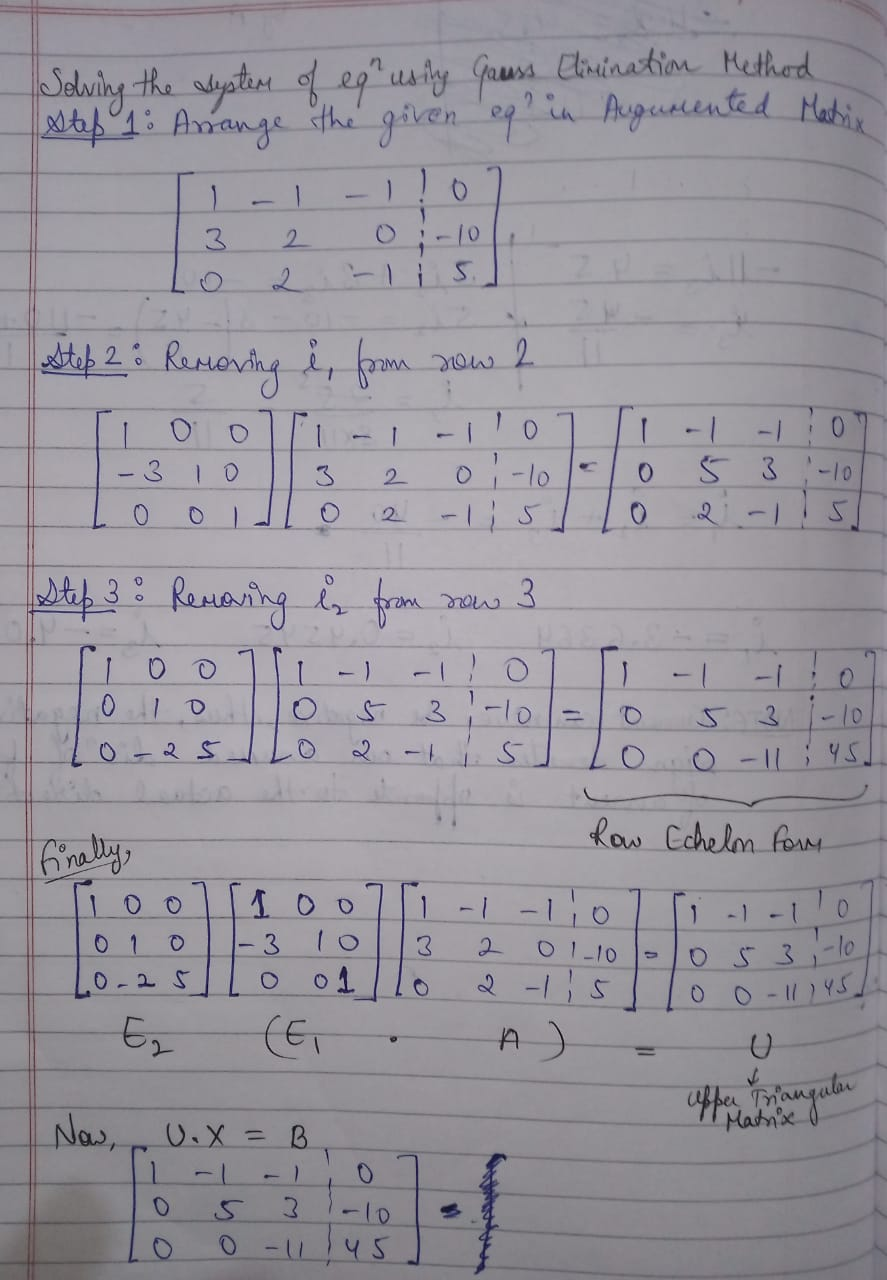 Solving the system of eqⁿ using Gauss Elimination Method
Step 1: Arrange the given eqⁿ in Augumented Matrix
[ 1 -1 -1 ¦ 0 ]
[ 3 2 0 ¦ -10 ]
[ 0 2 -1 ¦ 5 ]
Step 2: Removing i₁ from row 2
[ 1 0 0 ] [ 1 -1 -1 ¦ 0 ] [ 1 -1 -1 ¦ 0 ]
[ -3 1 0 ] [ 3 2 0 ¦ -10 ] = [ 0 5 3 ¦ -10 ]
[ 0 0 1 ] [ 0 2 -1 ¦ 5 ] [ 0 2 -1 ¦ 5 ]
Step 3: Removing i₂ from row 3
[ 1 0 0 ] [ 1 -1 -1 ¦ 0 ] [ 1 -1 -1 ¦ 0 ]
[ 0 1 0 ] [ 0 5 3 ¦ -10 ] = [ 0 5 3 ¦ -10 ]
[ 0 -2 5 ] [ 0 2 -1 ¦ 5 ] [ 0 0 -11 ¦ 45 ]
Row Echelon Form
Finally,
[ 1 0 0 ] [ 1 0 0 ] [ 1 -1 -1 ¦ 0 ] [ 1 -1 -1 ¦ 0 ]
[ 0 1 0 ] [ -3 1 0 ] [ 3 2 0 ¦ -10 ] = [ 0 5 3 ¦ -10 ]
[ 0 -2 5 ] [ 0 0 1 ] [ 0 2 -1 ¦ 5 ] [ 0 0 -11 ¦ 45 ]
E₂ (E₁ . A) = U
↓
Upper Triangular
Matrix
Now, U.X = B
[ 1 -1 -1 ¦ 0 ]
[ 0 5 3 ¦ -10 ] =
[ 0 0 -11 ¦ 45 ]